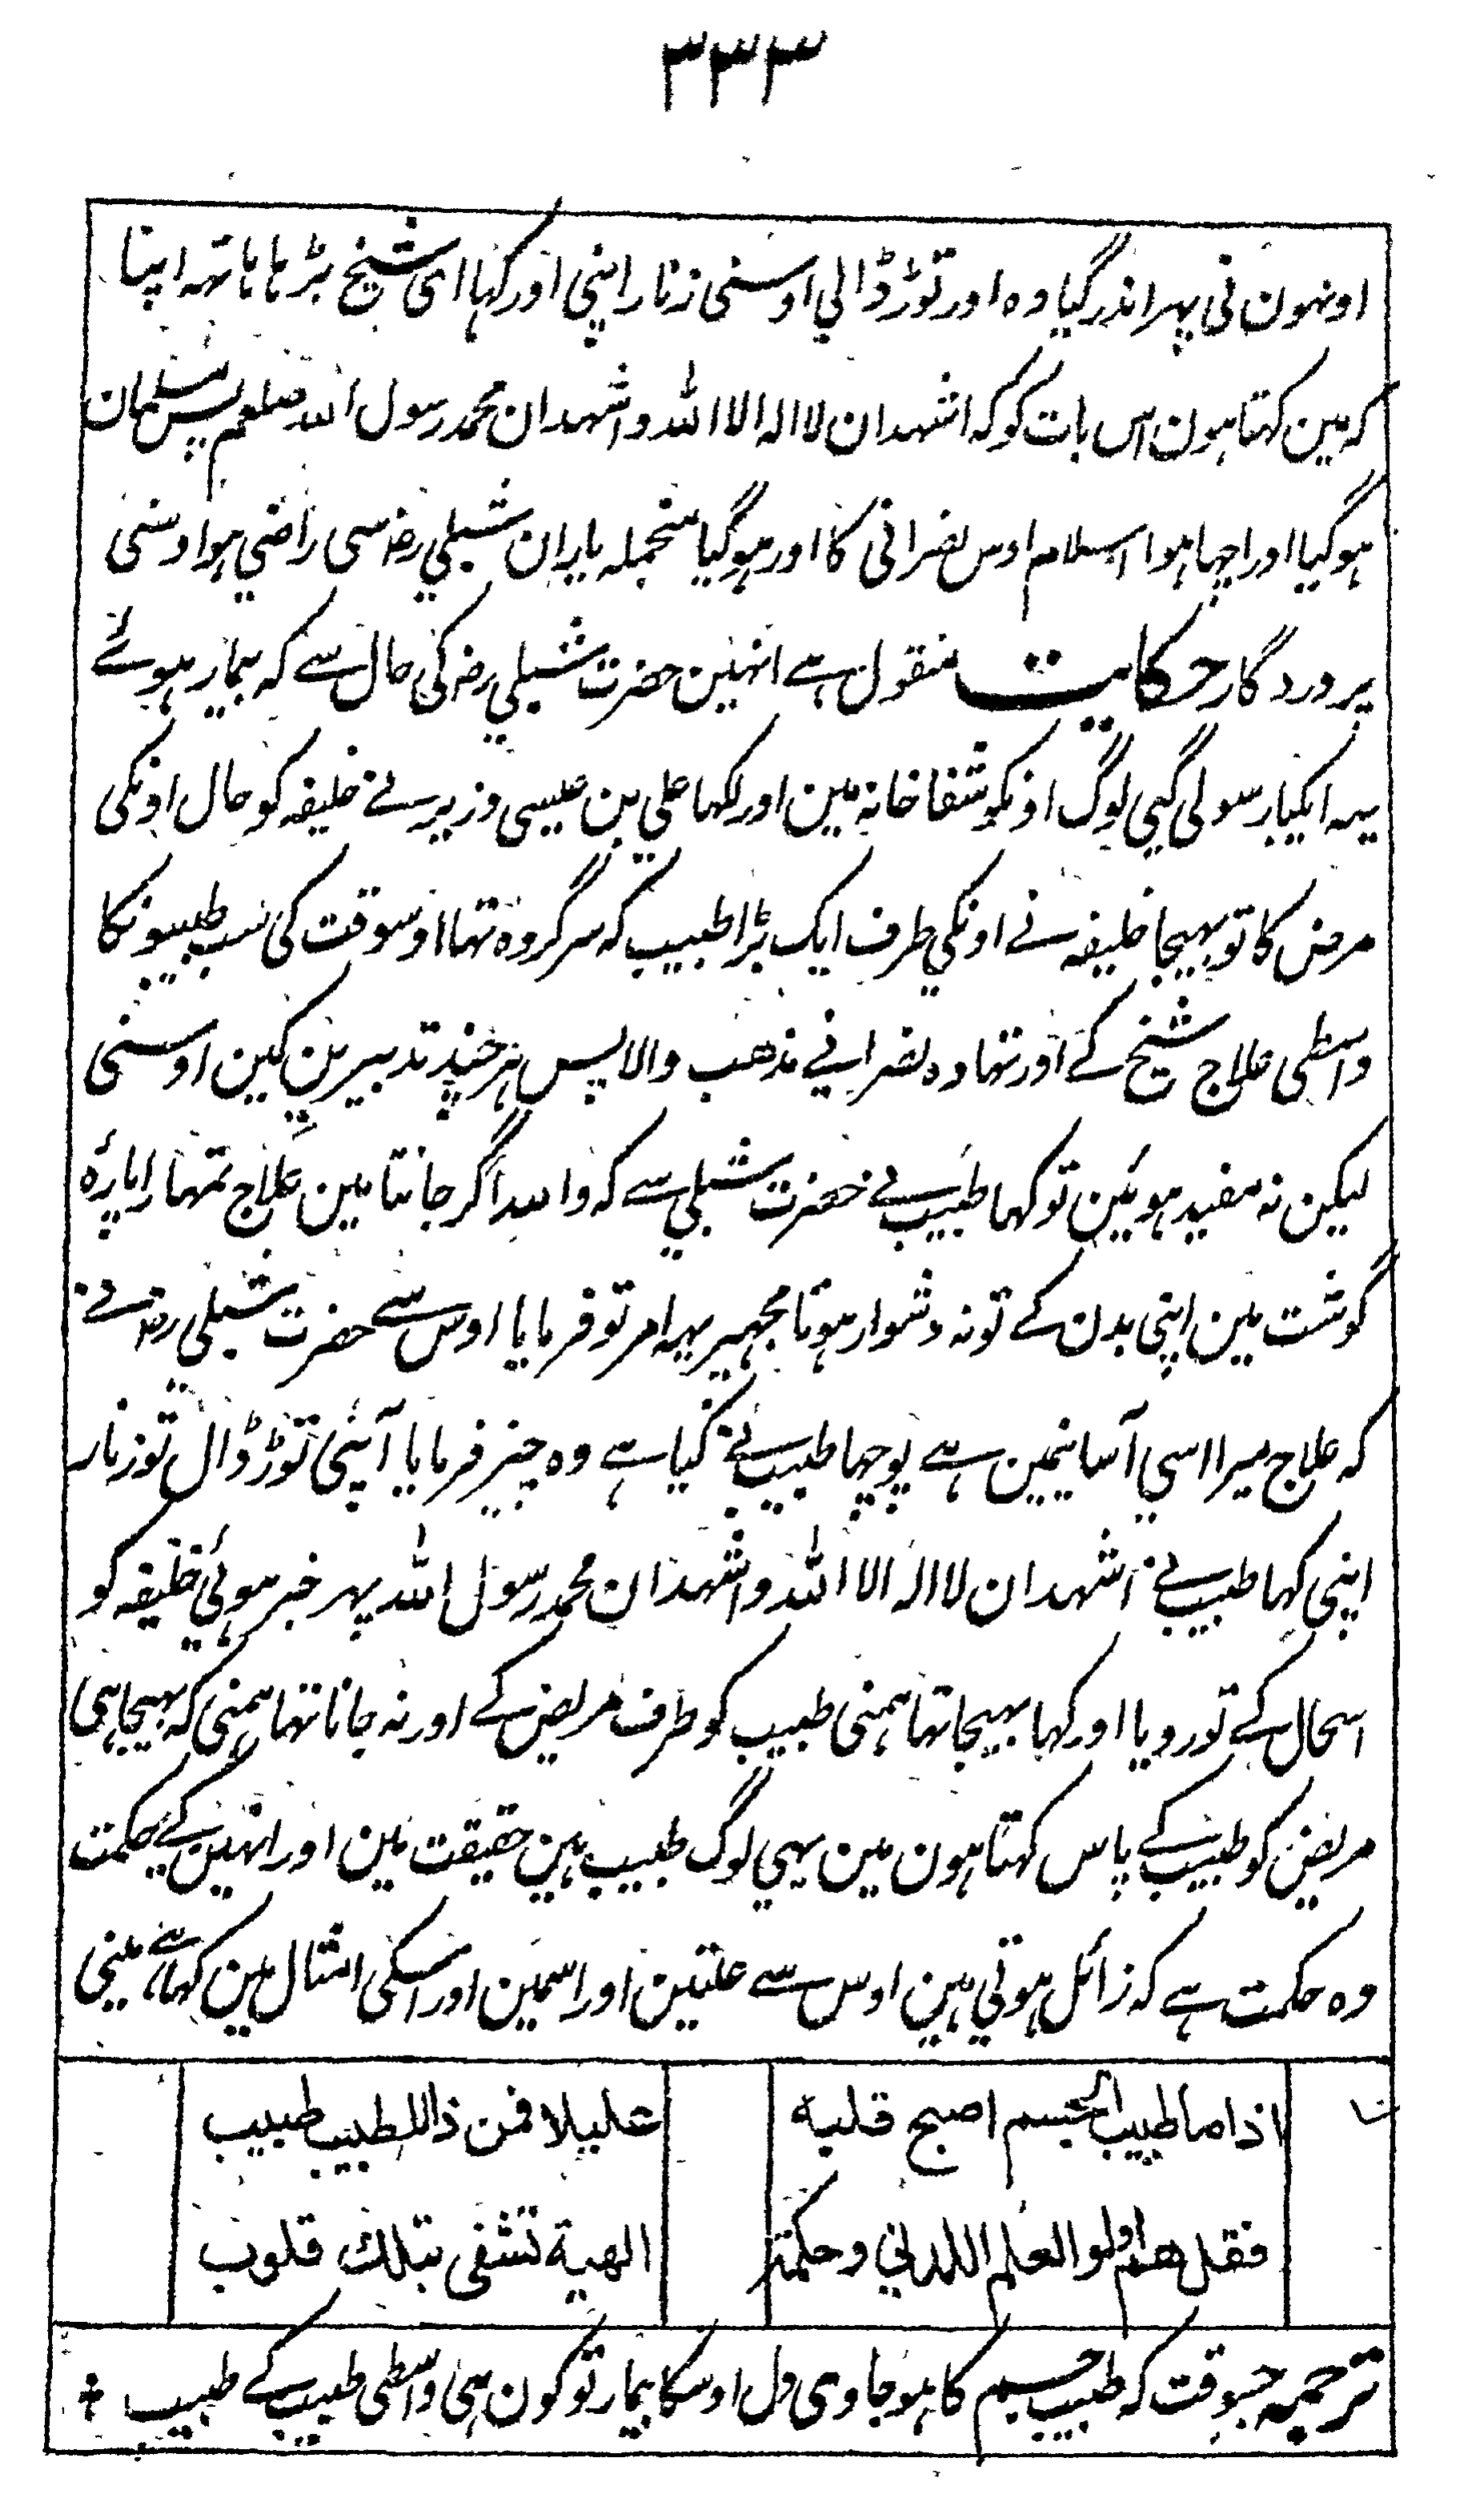 ۳۳۳
اونہون نی پہر اندر گیا وہ اور توڑ ڈالی اوسنی زنار اپنی اور کہا ای شیخ بڑہا ہاتہہ اپنا
کہ مین کہتا ہون اس بات کو کہ اشہد ان لا الہ الا اللہ و اشہد ان محمد رسول اللہ صلعم پس مسلمان
ہو گیا اور اچہا ہوا اسلام اوس نصرانی کا اور ہو گیا منجملہ یاران شبلی رضہ سی راضی ہوا وسنی
پروردگار حکایت منقول ہے انہین حضرت شبلی رضہ کی حال سے کہ بیمار ہوئے
یہہ ایکبار سو لی گیٔ لوگ اونکو شفاخانہ مین اور لکہا علی بن عیسی وزیر نے خلیفہ کو حال اونکی
مرض کا تو بہیجا خلیفہ نے اونکی طرف ایک بڑا طبیب کہ سر گروہ تہا اوسوقت کی سب طبیبونکا
واسطی علاج شیخ کے اور تہا وہ نصرانے مذہب والا پس ہر چند تدبیرین کین اوسنی
لیکن نہ مفید ہوئین تو کہا طبیب نے حضرت شبلی سے کہ واللہ اگر جانتا مین علاج تمہارا پارۂ
گوشت مین اپنی بدن کے تو نہ دشوار ہوتا مجہپر یہہ امر تو فرمایا اوس سے حضرت شبلی رضہ نے
کہ علاج میرا اسی آسانیمین ہے پوچہا طبیب نے کیا ہے وہ چیز فرمایا آپنی توڑ ڈال تو زنار
اپنی کہا طبیب نے اشہد ان لا الہ الا اللہ و اشہد ان محمد رسول اللہ پہر خبر ہوئی خلیفہ کو
اسحال کے تو رو دیا اور کہا بہیجا تہا ہمنی طبیب کو طرف مریض کے اور نہ جانا تہا ہمنی کہ بہیجا ہی
مریض کو طبیب کے پاس کہتا ہون مین یہی لوگ طبیب ہین حقیقت مین اور انہین کے حکمت
وہ حکمت ہے کہ زائل ہوتی ہین اوس سے علتین اور اسمین اور اسکی امثال مین کہا ہے مینی
اذا ما طبیب الجسم اصبح قلبہ علیلا فمن ذا للطبیب طبیب
فقل ھم اولو العلم اللدنی وحکمۃ الھیۃ تشفی بتلک قلوب
ترجمہ جسوقت کہ طبیب جسم کا ہو جاوی دل اوسکا بیمار تو کون ہی واسطی طبیب کے طبیب +